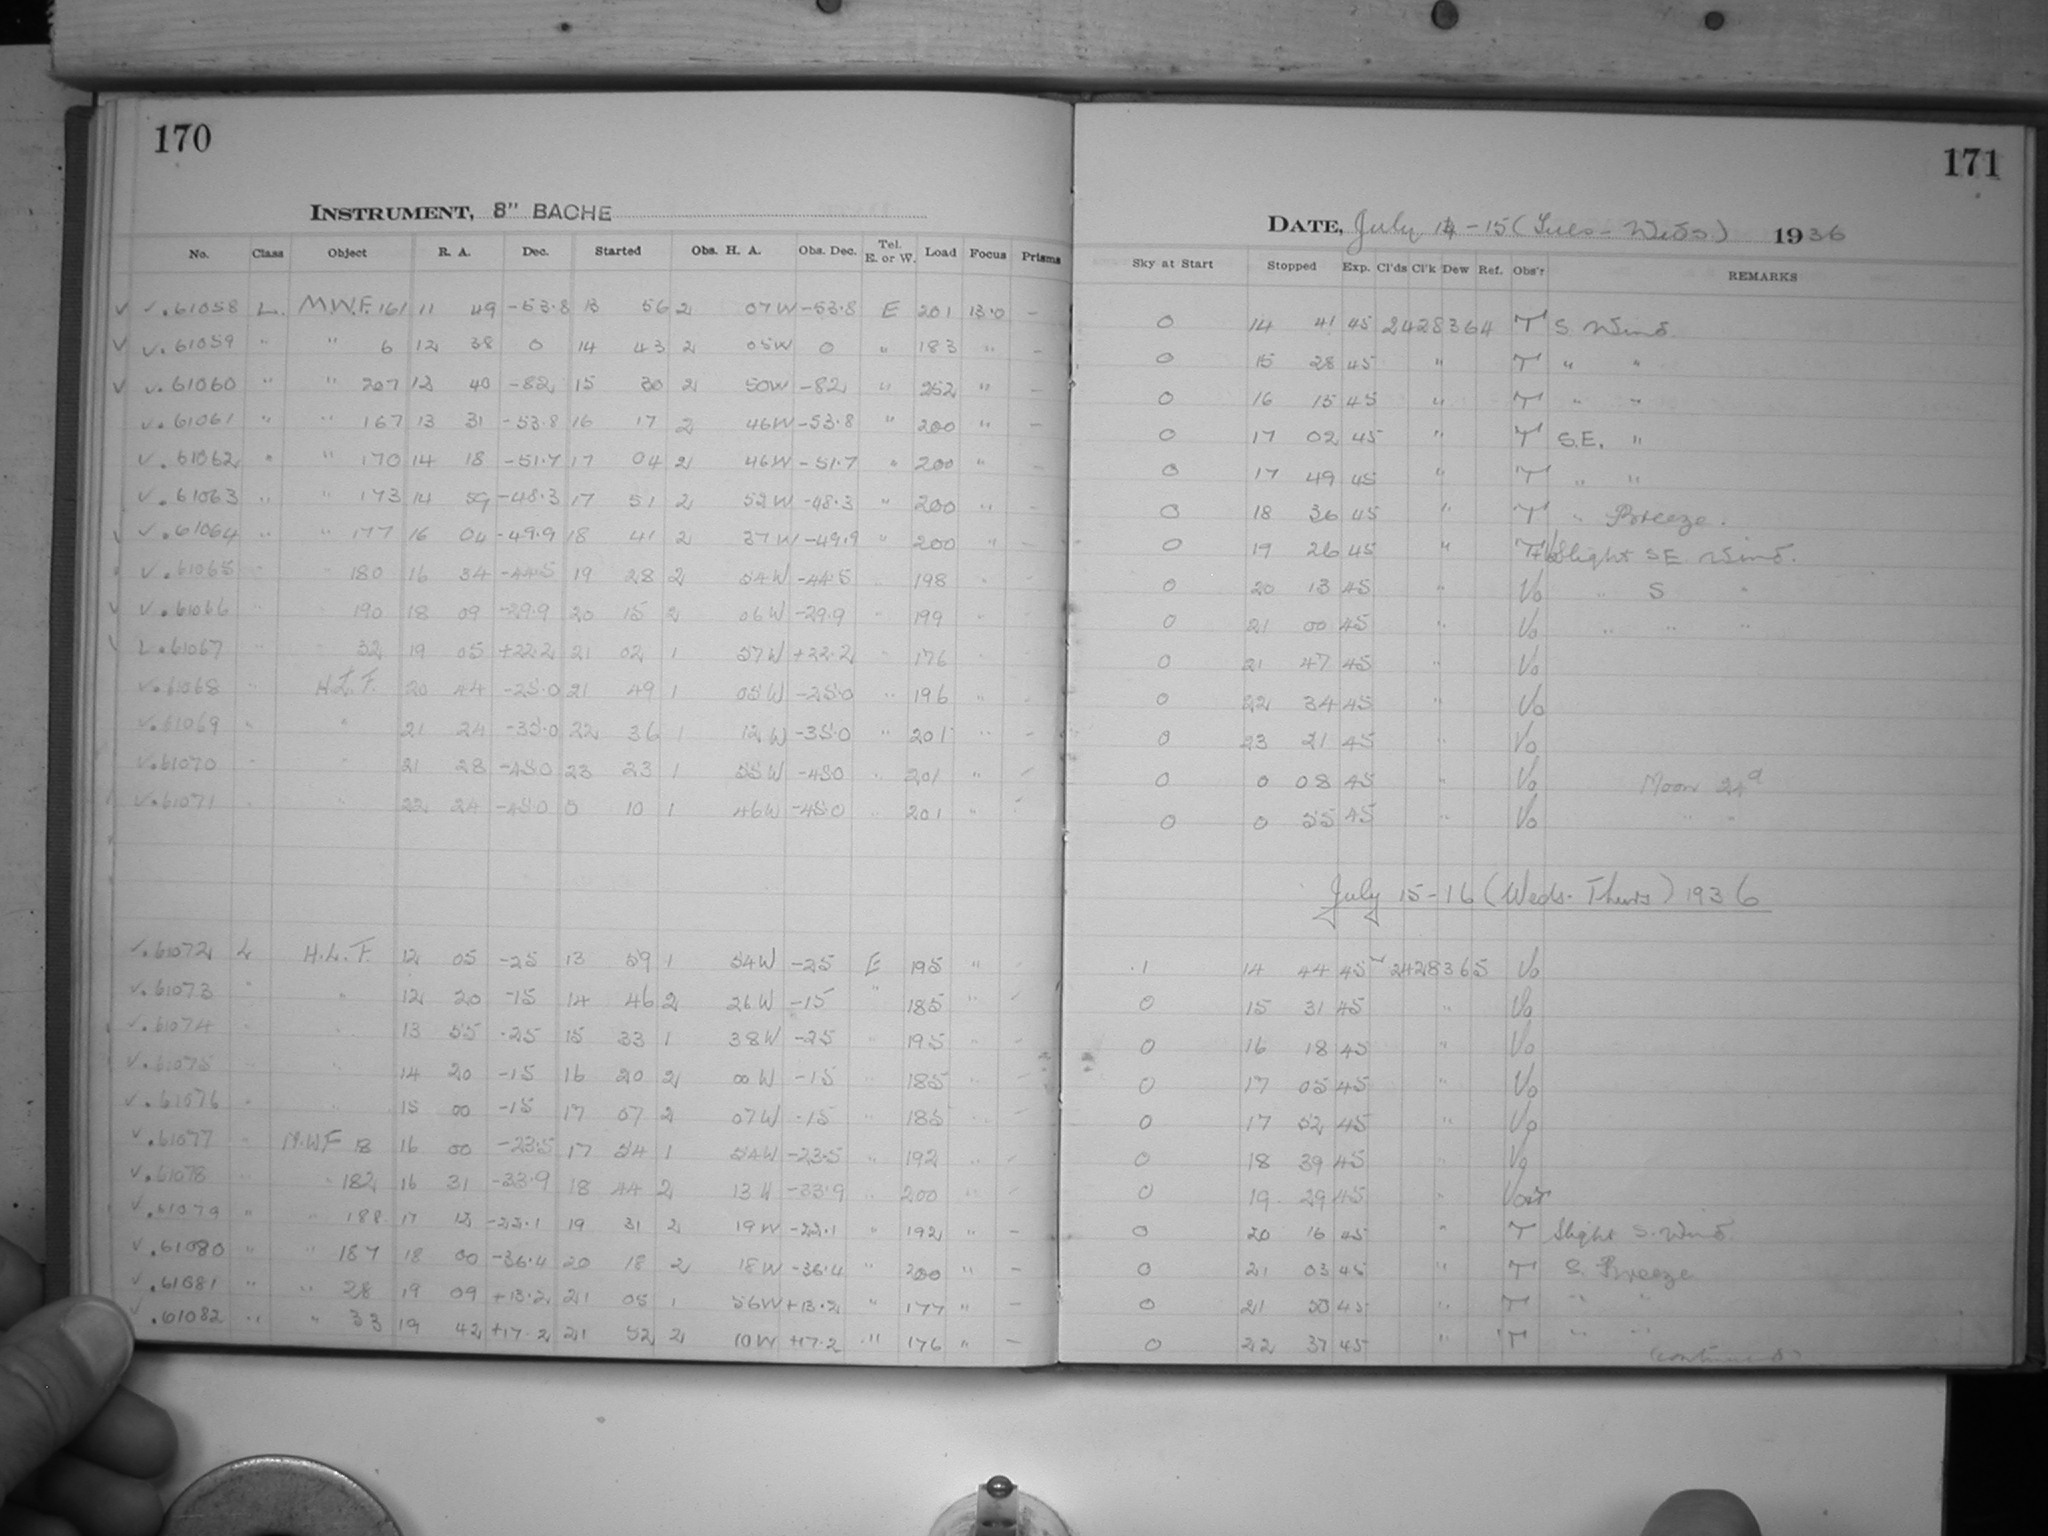 170
INSTRUMENT, 8" BACHE
No. Class Object R. A. Dec. Started Obs. H. A. Obs. Dec. Tel. E. or W. Load Focus Prisms
61058 L. M.W.F. 161 11 49 -53.8 13 56 2 07W -53.8 E 201 13.0 -
61059 " " 6 12 38 0 14 43 2 05W 0 " 183 " -
61060 " " 207 12 40 -82 15 30 2 50W -82 " 252 " -
61061 " " 167 13 31 -53.8 16 17 2 46W -53.8 " 200 " -
61062 " " 170 14 18 -51.7 17 04 2 46W -51.7 " 200 " -
61063 " " 173 14 59 -48.3 17 51 2 52W -48.3 " 200 " -
61064 " " 177 16 04 -49.9 18 41 2 37W -49.9 " 200 " -
61065 " " 180 16 34 -44.5 19 28 2 54W -44.5 " 198 " -
61066 " " 190 18 09 -29.9 20 15 2 06W -29.9 " 199 " -
61067 " " 32 19 05 +22.2 21 02 1 57W +22.2 " 176 " -
61068 " H.L.F. 20 44 -25.0 21 49 1 05W -25.0 " 196 " -
61069 " " 21 24 -35.0 22 36 1 12W -35.0 " 201 " -
61070 " " 21 28 -45.0 23 23 1 55W -45.0 " 201 " -
61071 " " 22 24 -45.0 0 10 1 46W -45.0 " 201 " -
61072 L H.L.F. 12 05 -25 13 59 1 54W -25 E 195 " -
61073 " " 12 20 -15 14 46 2 26W -15 " 185 " -
61074 " " 13 55 -25 15 33 1 38W -25 " 195 " -
61075 " " 14 20 -15 16 20 2 00W -15 " 185 " -
61076 " " 15 00 -15 17 07 2 07W -15 " 185 " -
61077 " M.W.F 16 00 -23.5 17 54 1 54W -23.5 " 192 " -
61078 " " 182 16 31 -33.9 18 44 2 13W -33.9 " 200 " -
61079 " " 188 17 12 -22.1 19 31 2 19W -22.1 " 192 " -
61080 " " 187 18 00 -36.4 20 18 2 18W -36.4 " 200 " -
61081 " " 28 19 09 +13.2 21 05 1 56W +13.2 " 177 " -
61082 " " 33 19 42 +17.2 21 52 2 10W +17.2 " 176 " -
171
DATE, July 14-15 (Tues - Weds) 1936
Sky at Start Stopped Exp. Cl'ds Cl'k Dew Ref. Obs'r REMARKS
0 14 41 45 2428364 T S Wind.
0 15 28 45 " T " "
0 16 15 45 " T " "
0 17 02 45 " T S.E. "
0 17 49 45 " T " "
0 18 36 45 " T " Breeze.
0 19 26 45 " Slight SE Wind.
0 20 13 45 " Vo " S "
0 21 00 45 " Vo " " "
0 21 47 45 " Vo
0 22 34 45 " Vo
0 23 21 45 " Vo
0 0 08 45 " Vo Moon 24d
0 0 55 45 " Vo " "
July 15-16 (Weds - Thurs) 1936
.1 14 44 45 2428365 Vo
0 15 31 45 " Vo
0 16 18 45 " Vo
0 17 05 45 " Vo
0 17 52 45 " Vo
0 18 39 45 " Vo
0 19 29 45 "
0 20 16 45 " T Slight S. Wind
0 21 03 45 " T S. Breeze
0 21 50 45 " T " "
0 22 37 45 " T " "
(continued)